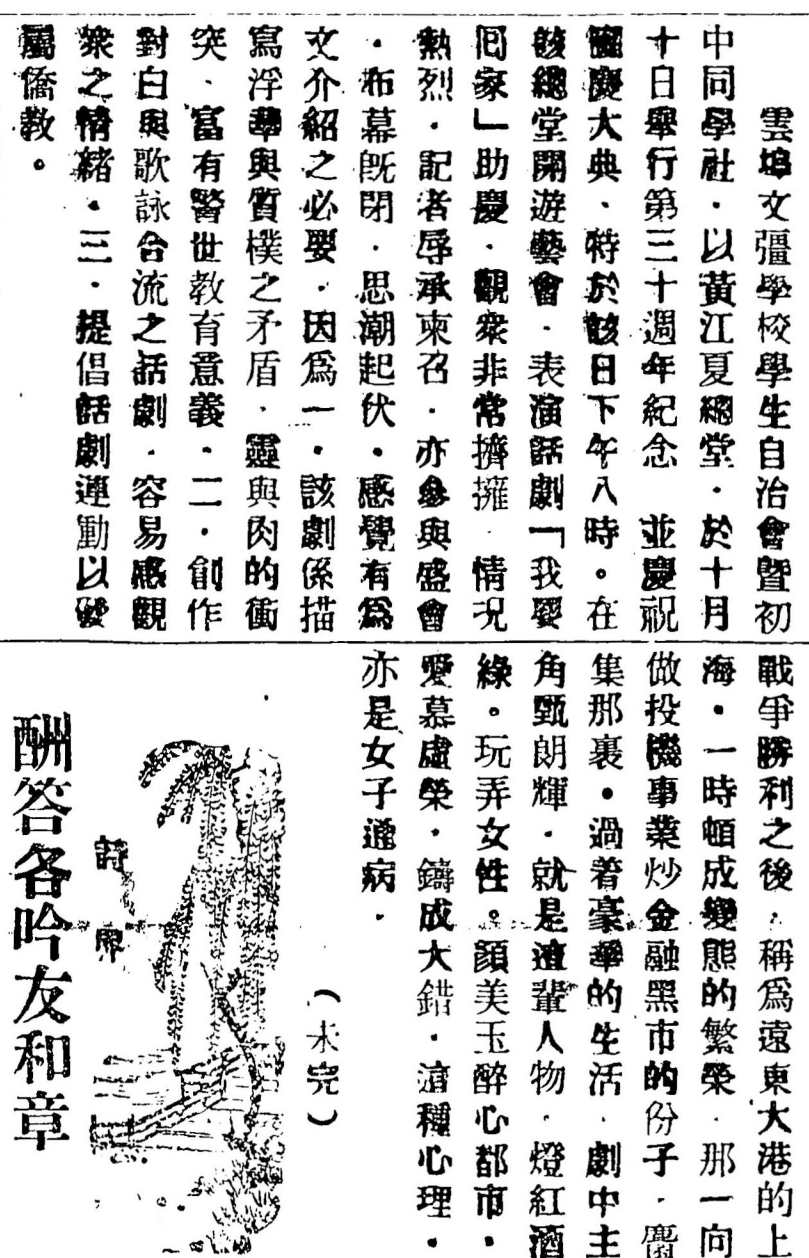 雲埠文彊學校學生自治會暨初
中同學社．以黃江夏總堂．於十月
十日舉行第三十週年紀念　並慶祝
國慶大典、特於該日下午八時。在
該總堂開遊藝會．表演話劇「我要
囘家」助慶．觀衆非常擠擁．情況
熱烈．記者辱承柬召．亦參與盛會
．布幕旣閉．思潮起伏．感覺有爲
文介紹之必要．因爲一．該劇係描
寫浮華與質樸之矛盾．靈與肉的衝
突．富有警世教育意義．二．創作
對白與歌詠合流之話劇．容易感觀
衆之情緒．三．提倡話劇運動以發
屬僑教。
戰爭勝利之後．稱爲遠東大港的上
海．一時頓成變態的繁榮．那一向
做投機事業炒金融黑市的份子．麕
集那裏．過着豪華的生活．劇中主
角甄朗輝．就是這輩人物．燈紅酒
綠。玩弄女性。顏美玉醉心都市．
愛慕虛榮．鑄成大錯．這種心理．
亦是女子通病．
（未完）
詩界
酬答各吟友和章